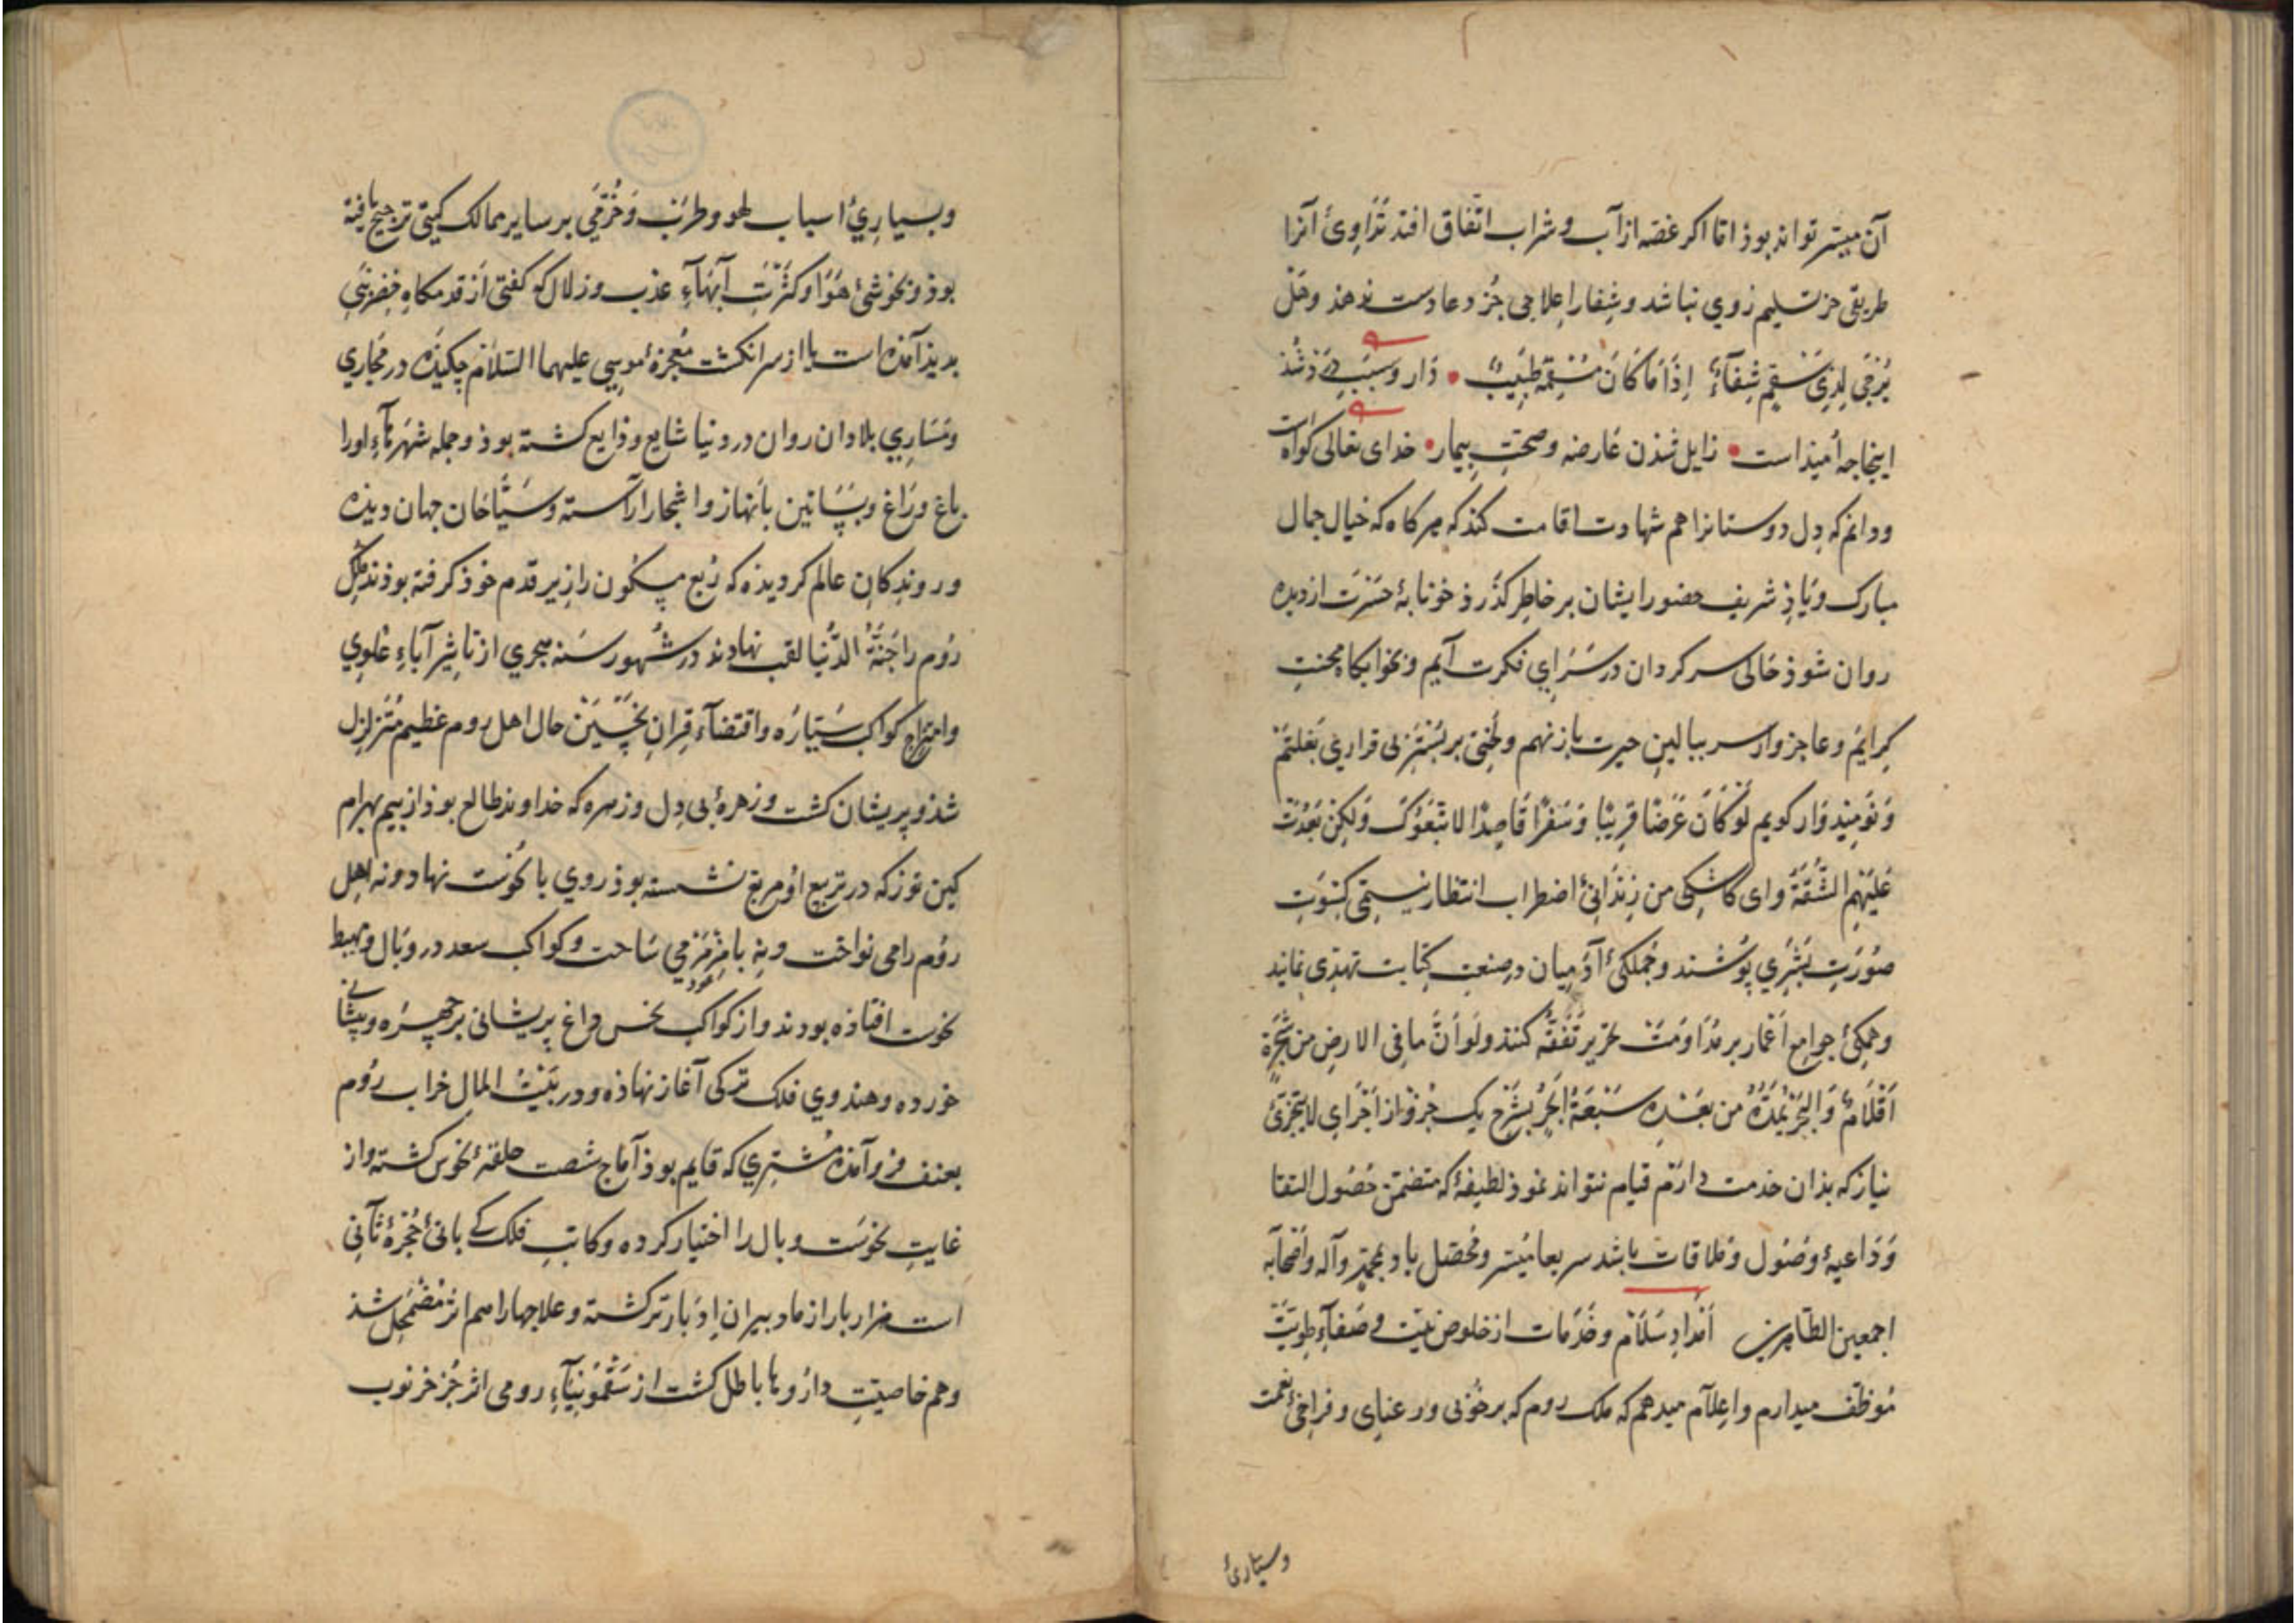 آن میسر تواند بوذ اما اکر غصه از آب و شراب اتفاق افتد تداوی آنرا
طریقی جز تسلیم روی نباشد و شفا را علاجی جز دعا دست ندهذ و هل
یرجی لذی سقم شفاء اذا ما کان مسقمه طبیب دارو سبب درد شذ
اینجا جه امیذ است زایل شذن عارضه و صحت بیمار خدای تعالی کواه است
و دانم که دل دوستانرا هم شهادت اقامت کند که هرکاه که خیال جمال
مبارک و یاذ شریف حضور ایشان بر خاطر کذرذ خونابه حسرت از دیده
روان شوذ حالی سرکردان در سرای فکرت آیم و بخوابکاه محنت
کرایم و عاجزوار سر ببالین حیرت باز نهم و لختی بر بستر بی قراری بغلتم
و نومیذوار کویم لو کان عرضا قریبا و سفرا قاصدا لاتبعوک ولکن بعدت
علیهم الشقة و ای کاشکی من زندانی اضطراب انتظار نیستمی کسوت
صورت بشری پوشند و جملکی آدمیان در صنعت کتابت تهذی نمایند
و همکی جوامع اعمار بر مداومت تحریر تفقه کنند ولو ان ما فی الارض من شجرة
اقلام والبحر یمده من بعده سبعة ابحر بشرح یک جزو از اجزای لا یتجزی
نیاز که بذان خدمت دارم قیام نتوانند نموذ لطیفه که متضمن حصول التقا
و داعیه وصول و ملاقات باشد سریعا میسر و محصل باد بمحمد و آله و اصحابه
اجمعین الطاهرین امداد سلام و خدمات از خلوص نیت و صفاء طویت
موظف میدارم و اعلام میدهم که ملک روم که بر خوبی و رعنایی و فراخی نعمت
وبسیاری
و بسیاری اسباب لهو و طرب و خرمی بر سایر ممالک کیتی ترجیح یافته
بوذ و بخوشی هوا و کثرت آبهاء عذب و زلال که کفتی از قدمکاه خضر نبی
بدیذ آمذه است یا از سر انکشت معجزه موسی علیهما السلام چکیذه در مجاری
و مساری بلادان روان در دنیا شایع و ذایع کشته بوذ و جمله شهرهاء او را
باغ و راغ و بساتین بانهار و اشجار آراسته و سیاحان جهان دیذه
و روندکان عالم کردیذه که ربع مسکون را زیر قدم خوذ کرفته بوذند ملک
روم را جنة الدنیا لقب نهادند در شهور سنه هجری از تاثیر آباء علوی
و امتزاج کواکب سیاره و اقتضاء قران نحسین حال اهل روم عظیم متزلزل
شذ و پریشان کشت و زهره بی دل و زهره که خداوند طالع بوذ از بیم بهرام
کین توز که در تربیع او مربع نشسته بوذ روی با نحوست نهاد و نه اهل
روم را می نواخت و نه با مزمزمی ساخت و کواکب سعد در وبال و هبوط
نحوست افتاذه بودند و از کواکب نحس داغ پریشانی بر چهره و پیشانی
خورده و هندوی فلک ترکی آغاز نهاذه و در بیت المال خراب روم
بعنف فرو آمذه مشتری که قایم بوذ آماج شصت حلقه نحوس کشته و از
غایت نحوست وبال را اختیار کرده و کاتب فلک که بانی حجره ثانی
است هزار بار از ما دبیران ادبارتر کشته و علاجها را هم اثر مضمحل شذ
و هم خاصیت داروها باطل کشت از سقمونیاء رومی اثر جز خرنوب